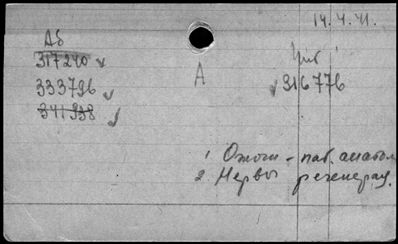 14.4.41.
Дб
317240
333796
341938
А
Циб
316776
1 Ожоги - пат. анатом.
2. Нервы регенерац.